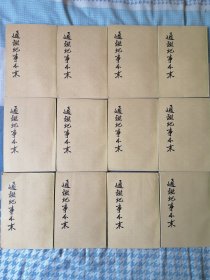 通鑑紀事本末
通鑑紀事本末
通鑑紀事本末
通鑑紀事本末
通鑑紀事本末
通鑑紀事本末
通鑑紀事本末
通鑑紀事本末
通鑑紀事本末
通鑑紀事本末
通鑑紀事本末
通鑑紀事本末